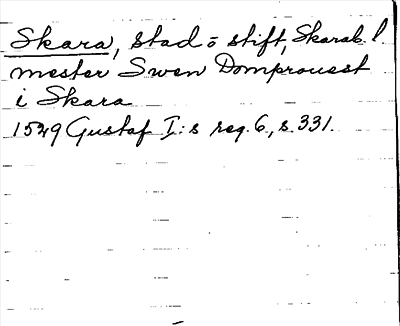 Skara, stad o stift, Skarab. l
mester Swen Domprouest
i Skara
1529 Gustaf I:s reg. 6, s. 331.